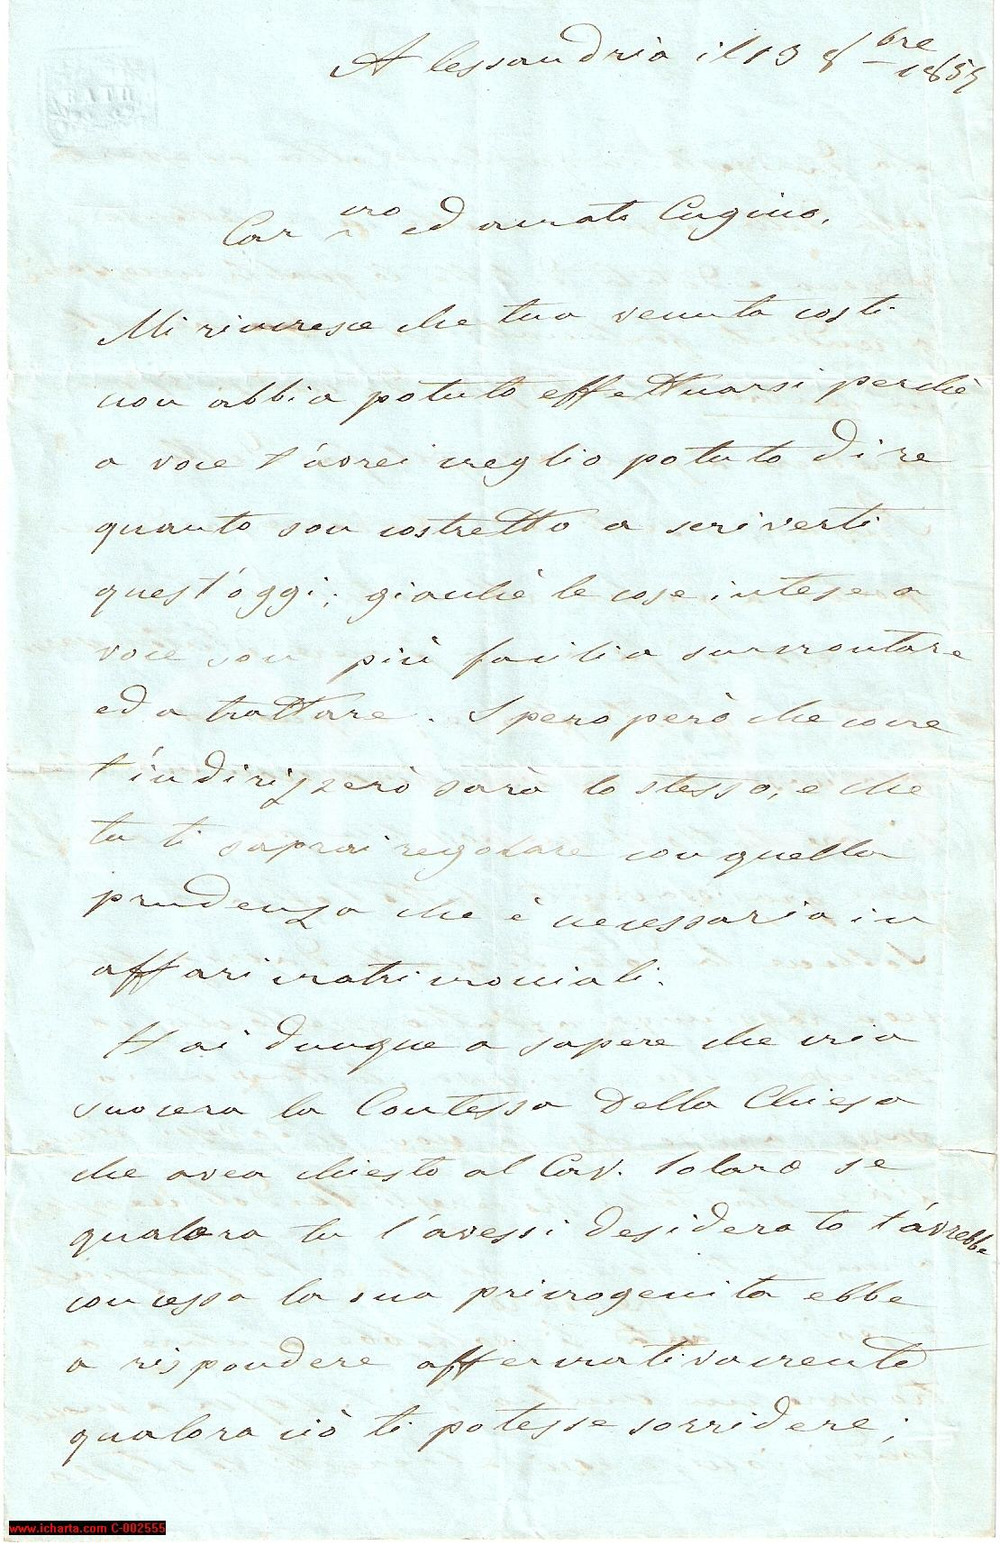 Alessandria il 13 8bre 1857
Car.mo ed amato Cugino,
Mi rincresce che tua venuta costì
non abbia potuto effettuarsi perchè
a voce t'avrei meglio potuto dire
quanto son costretto a scriverti
quest'oggi; giacchè le cose intese a
voce son più facili a sormontare
ed a trattare. Spero però che come
t'indirizzerò sarà lo stesso, e che
tu ti saprai regolare con quella
prudenza che è necessaria in
affari matrimoniali.
Hai dunque a sapere che mia
suocera la Contessa Della Chiesa
che avea chiesto al Cav. Solaro se
qualora tu l'avessi desiderato t'avrebbe
concessa la sua primogenita ebbe
a rispondere affermativamente
qualora ciò ti potesse sorridere;
www.icharta.com C-002555